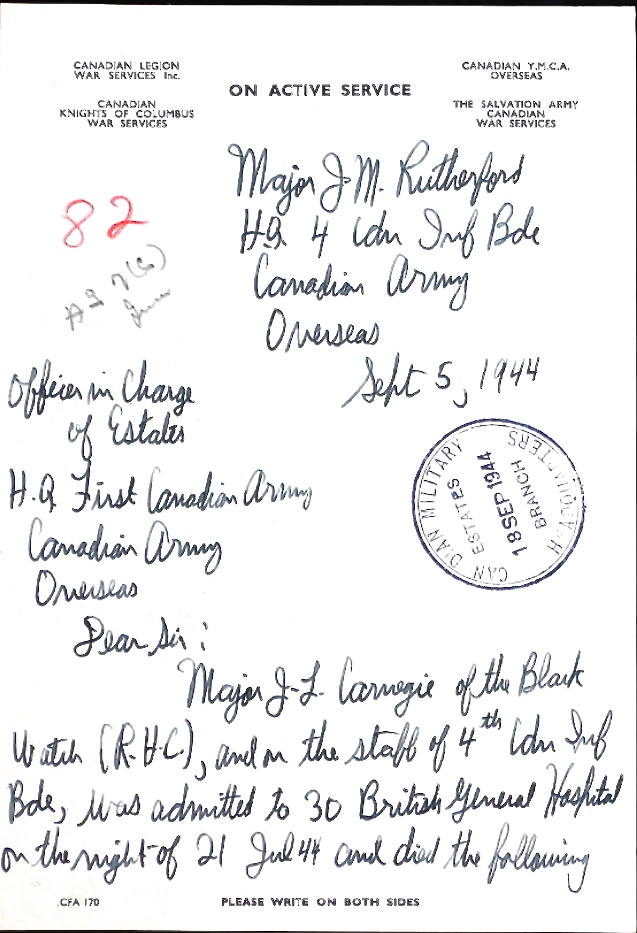 CANADIAN LEGION
WAR SERVICES Inc.
CANADIAN
KNIGHTS OF COLUMBUS
WAR SERVICES
ON ACTIVE SERVICE
CANADIAN Y.M.C.A.
OVERSEAS
THE SALVATION ARMY
CANADIAN
WAR SERVICES
82
Major J-M. Rutherford
H.Q. 4 Cdn Inf Bde
Canadian Army
Overseas
Sept 5, 1944
Officer in Charge
of Estates
H.Q. First Canadian Army
Canadian Army
Overseas
CANADIAN MILITARY HEADQUARTERS
ESTATES
18 SEP 1944
BRANCH
Dear Sir:
Major J-L. Carnegie of the Black
Watch (R.H.C.), and on the staff of 4th Cdn Inf
Bde, was admitted to 30 British General Hospital
on the night of 21 Jul 44 and died the following
CFA 170
PLEASE WRITE ON BOTH SIDES